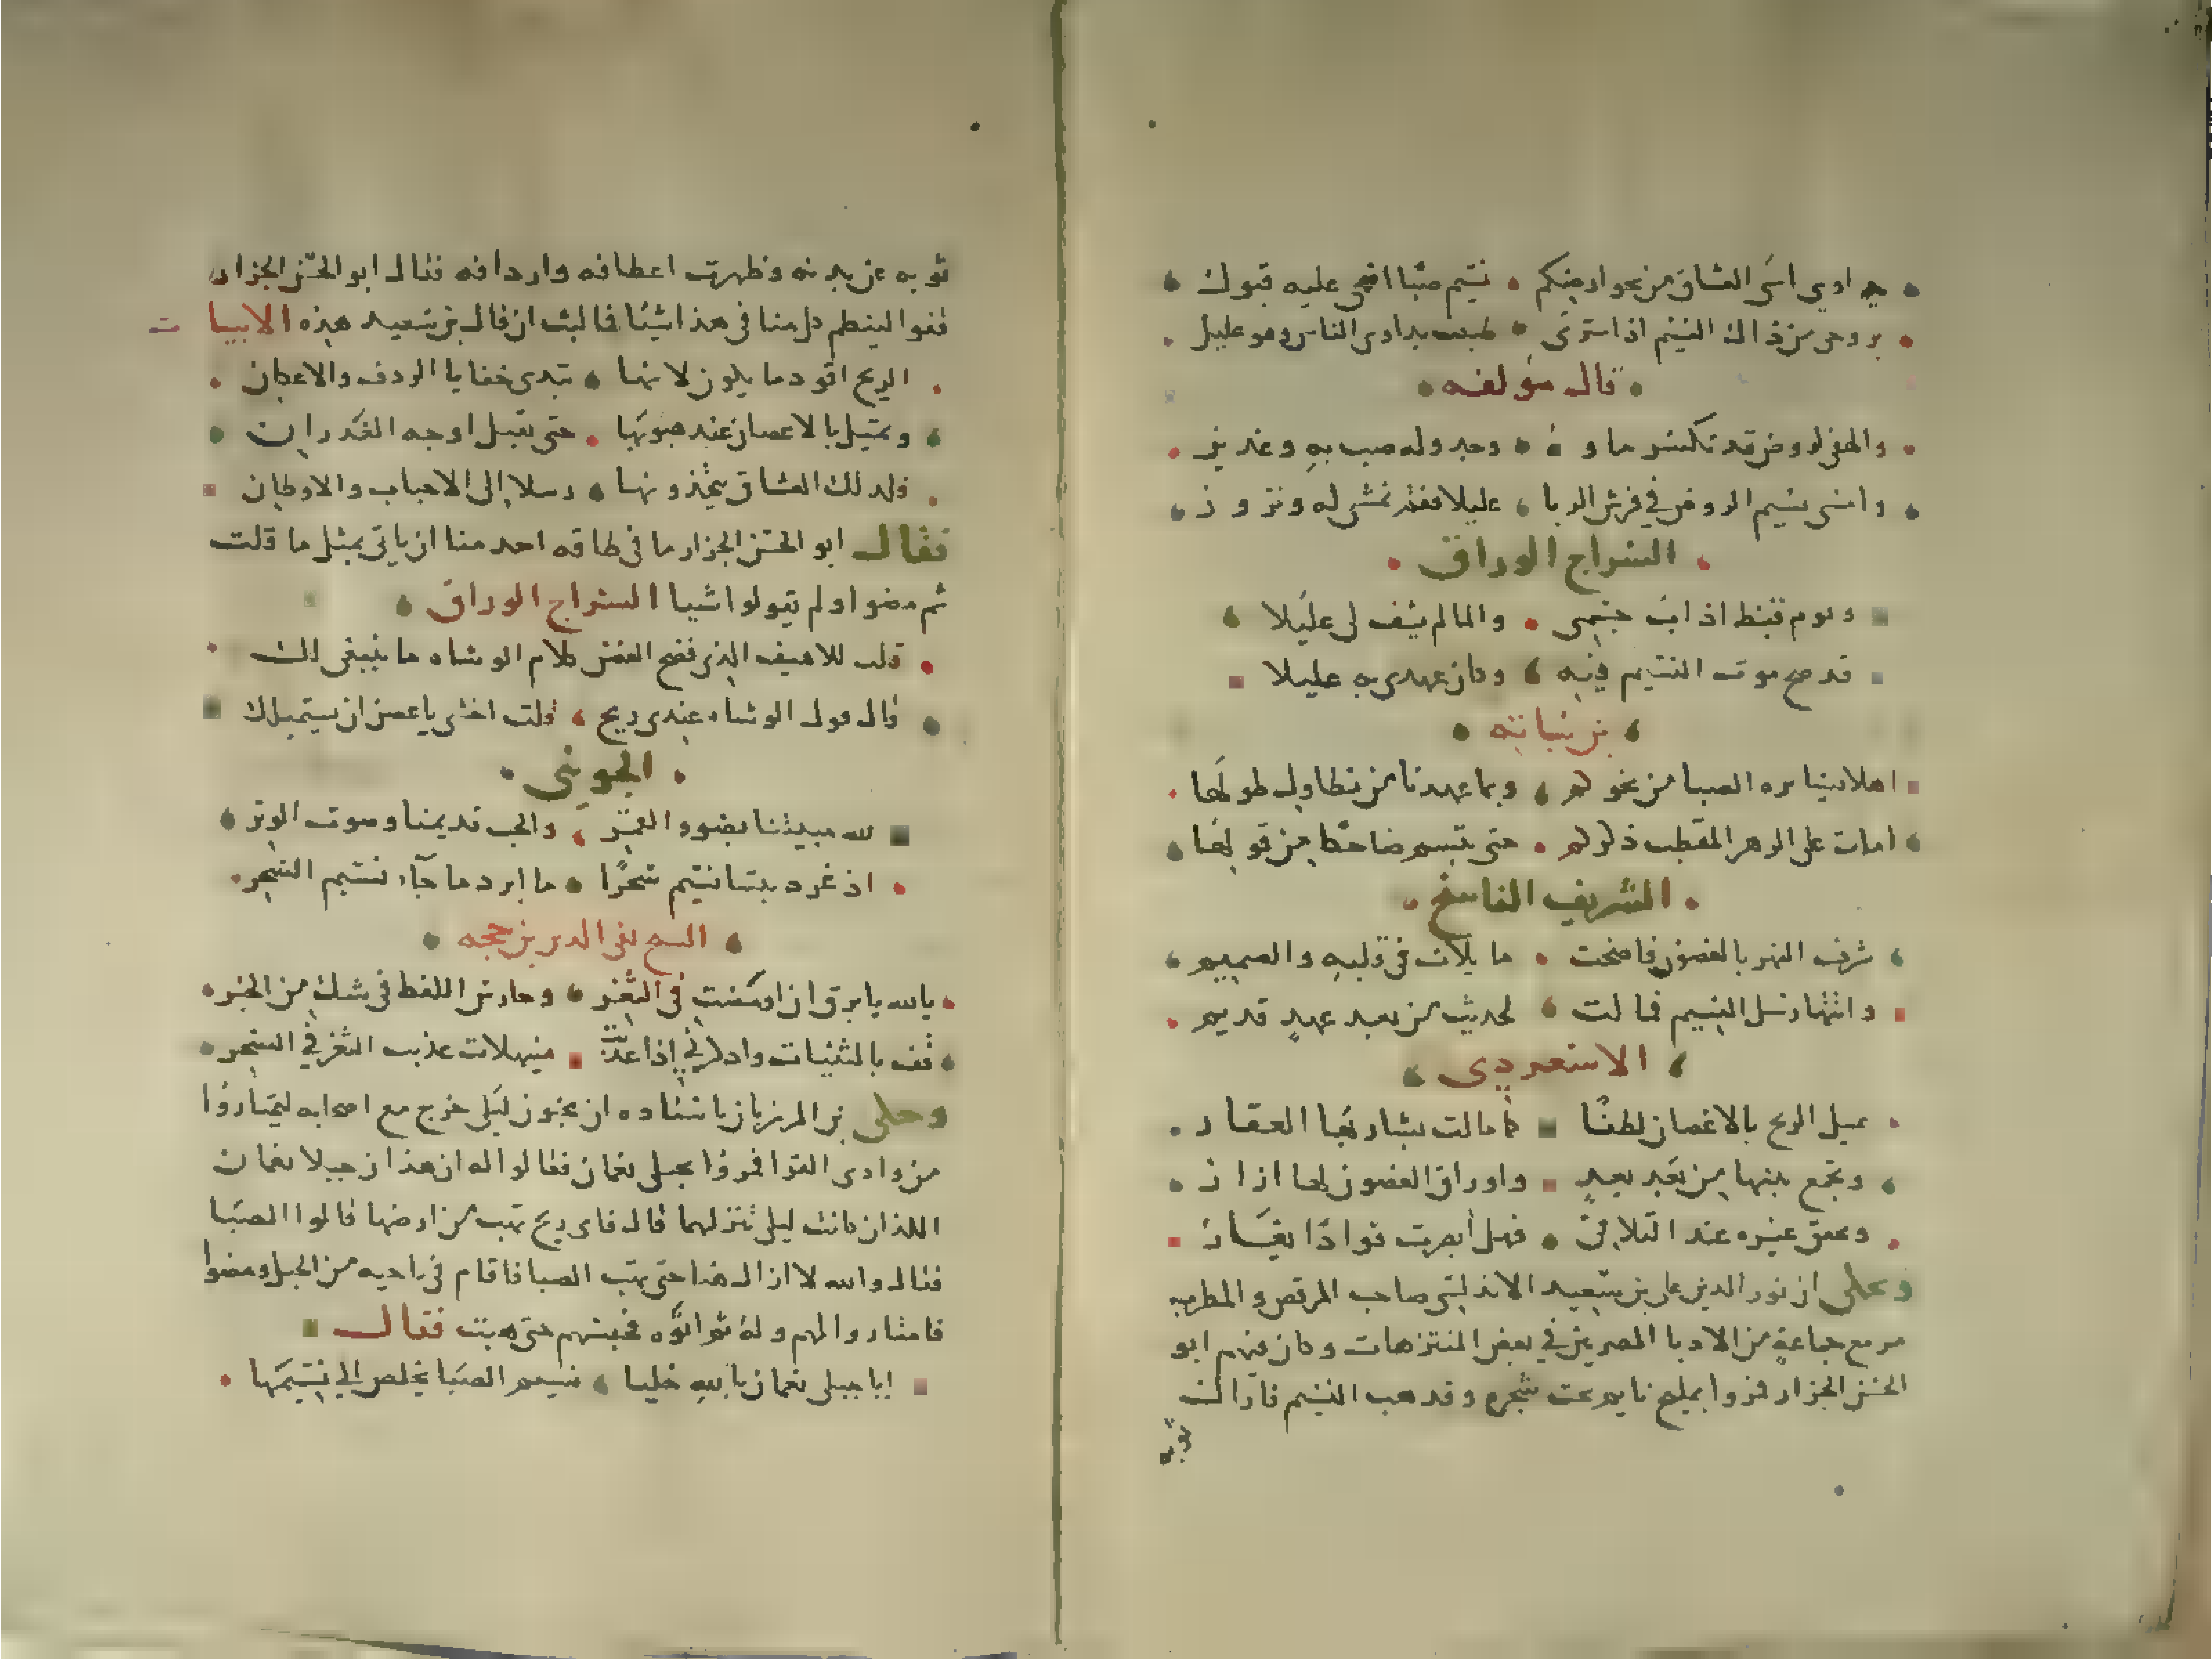 يداوي اسى العشاق من نحو ارضكم • نسيم صبا اضحى عليه قبول
بروحي من ذاك النسيم اذا سرى • طبيب يداوي الناس وهو عليل
قال مؤلفه
والهفي لروض قد تكسر ماوه • وجدوله صب به وغدير
وامسى نسيم الروض في فرش الربا • عليلا فقد تمشى له وتزور
السراج الوراق
ويوم قيظ اذاب جسمي • والما لم يشف لي غليلا
قد صح موت النسيم فيه • وكان عهدي به عليلا
بن نباته
اهلا بسايره الصبا من نحوكم • وبما عهدنا من تطاول طولها
املت على الزهر المقطب ذكركم • حتى تبسم ضاحكا من قولها
الشريف الناسخ
شرف النهر بالغصون فاضحت • مايلات في قلبه والصميم
وانتها رسل النسيم فمالت • لحديث من بعد عهد قديم
الاسعردي
يميل الريح بالاغصان لطفا • كما مالت بشاربها العقار
وتجمع بينها من بعد بعد • واوراق الغصون لها ازار
ويحنق غيره عند التلاقي • فهل ابصرت قوادا يغار
وحكى ان نور الدين علي بن سعيد الاندلسي صاحب المرقص والمطرب
مر مع جماعة من الادبا المصريين في بعض المنتزهات وكان فيهم ابو
الحسن الجزار فمروا بمليح نايم تحت شجره وقد هب النسيم فازالت
ثوبه
ثوبه عن بدنه وظهرت اعطافه واردافه فقال ابو الحسن الجزار
قفوا لينظم كل منا في هذا شيئا فما لبث ان قال بن سعيد هذه الابيات
الريح اقود ما يكون لانها • تبدي خفايا الردف والاعكان
وتميل بالاغصان عند هبوبها • حتى تقبل اوجه الغدران
فلذلك العشاق يتخذونها • رسلا الى الاحباب والاوطان
فقال ابو الحسن الجزار ما في طاقه احد منا ان ياتي بمثل ما قلت
ثم مضوا ولم يقولوا شيا السراج الوراق
قلت للاهيف الذي فضح الغصن كلام الوشاه ما ينبغي لك
قال قول الوشاه عندي ريح • قلت اخشى يا غصن ان يستميلك
الجويني
لله مبيتنا بضوء القمر • والحب نديمنا وصوت الوتر
اذ غرد بيننا نسيم سحرا • ما ابرد ما جآء نسيم السحر
الشيخ تقي الدين بن حجه
بالله يا برق ان اومضت في الثغر • وحار من اللفظ في شك من الخبر
قف بالثنيات واد لي اذا عدت • منهلات عذب الثغر في السحر
وحكى بن المرزبان باسناده ان مجنون ليلى خرج مع اصحابه ليمتاروا
من وادي القرا فمروا بجبلي نعمان فقالوا له ان هذان جبلا نعمان
اللذان كانت ليلى تنزلهما قال فاي ريح تهب من ارضها قالوا الصبا
فقال والله لا ازال هنا حتى تهب الصبا فاقام في ناحيه من الجبل ومضوا
فامتاروا لهم وله ثم اتوه فحبسهم حتى هبت فقال
ايا جبلي نعمان بالله خليا • نسيم الصبا يخلص الي نسيمها